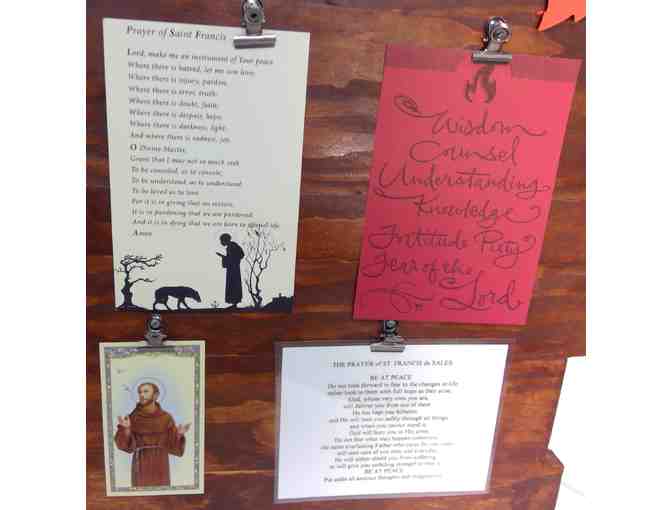 Prayer of Saint Francis
Lord, make me an instrument of Your peace
Where there is hatred, let me sow love;
Where there is injury, pardon;
Where there is error, truth;
Where there is doubt, faith;
Where there is despair, hope;
Where there is darkness, light;
And where there is sadness, joy.
O Divine Master,
Grant that I may not so much seek
To be consoled, as to console;
To be understood, as to understand;
To be loved as to love
For it is in giving that we receive,
It is in pardoning that we are pardoned,
And it is in dying that we are born to eternal life.
Amen
Wisdom
Counsel
Understanding
Knowledge
Fortitude Piety
Fear of the
Lord
THE PRAYER of ST. FRANCIS de SALES
BE AT PEACE
Do not look forward in fear to the changes in life;
rather look to them with full hope as they arise.
God, whose very own you are,
will deliver you from out of them
He has kept you hitherto
and He will lead you safely through all things
and when you cannot stand it
God will bury you in His arms
Do not fear what may happen tomorrow;
the same everlasting Father who cares for you today
will take care of you then and everyday.
He will either shield you from suffering
or will give you unfailing strength to bear it.
BE AT PEACE
Put aside all anxious thoughts and imaginations